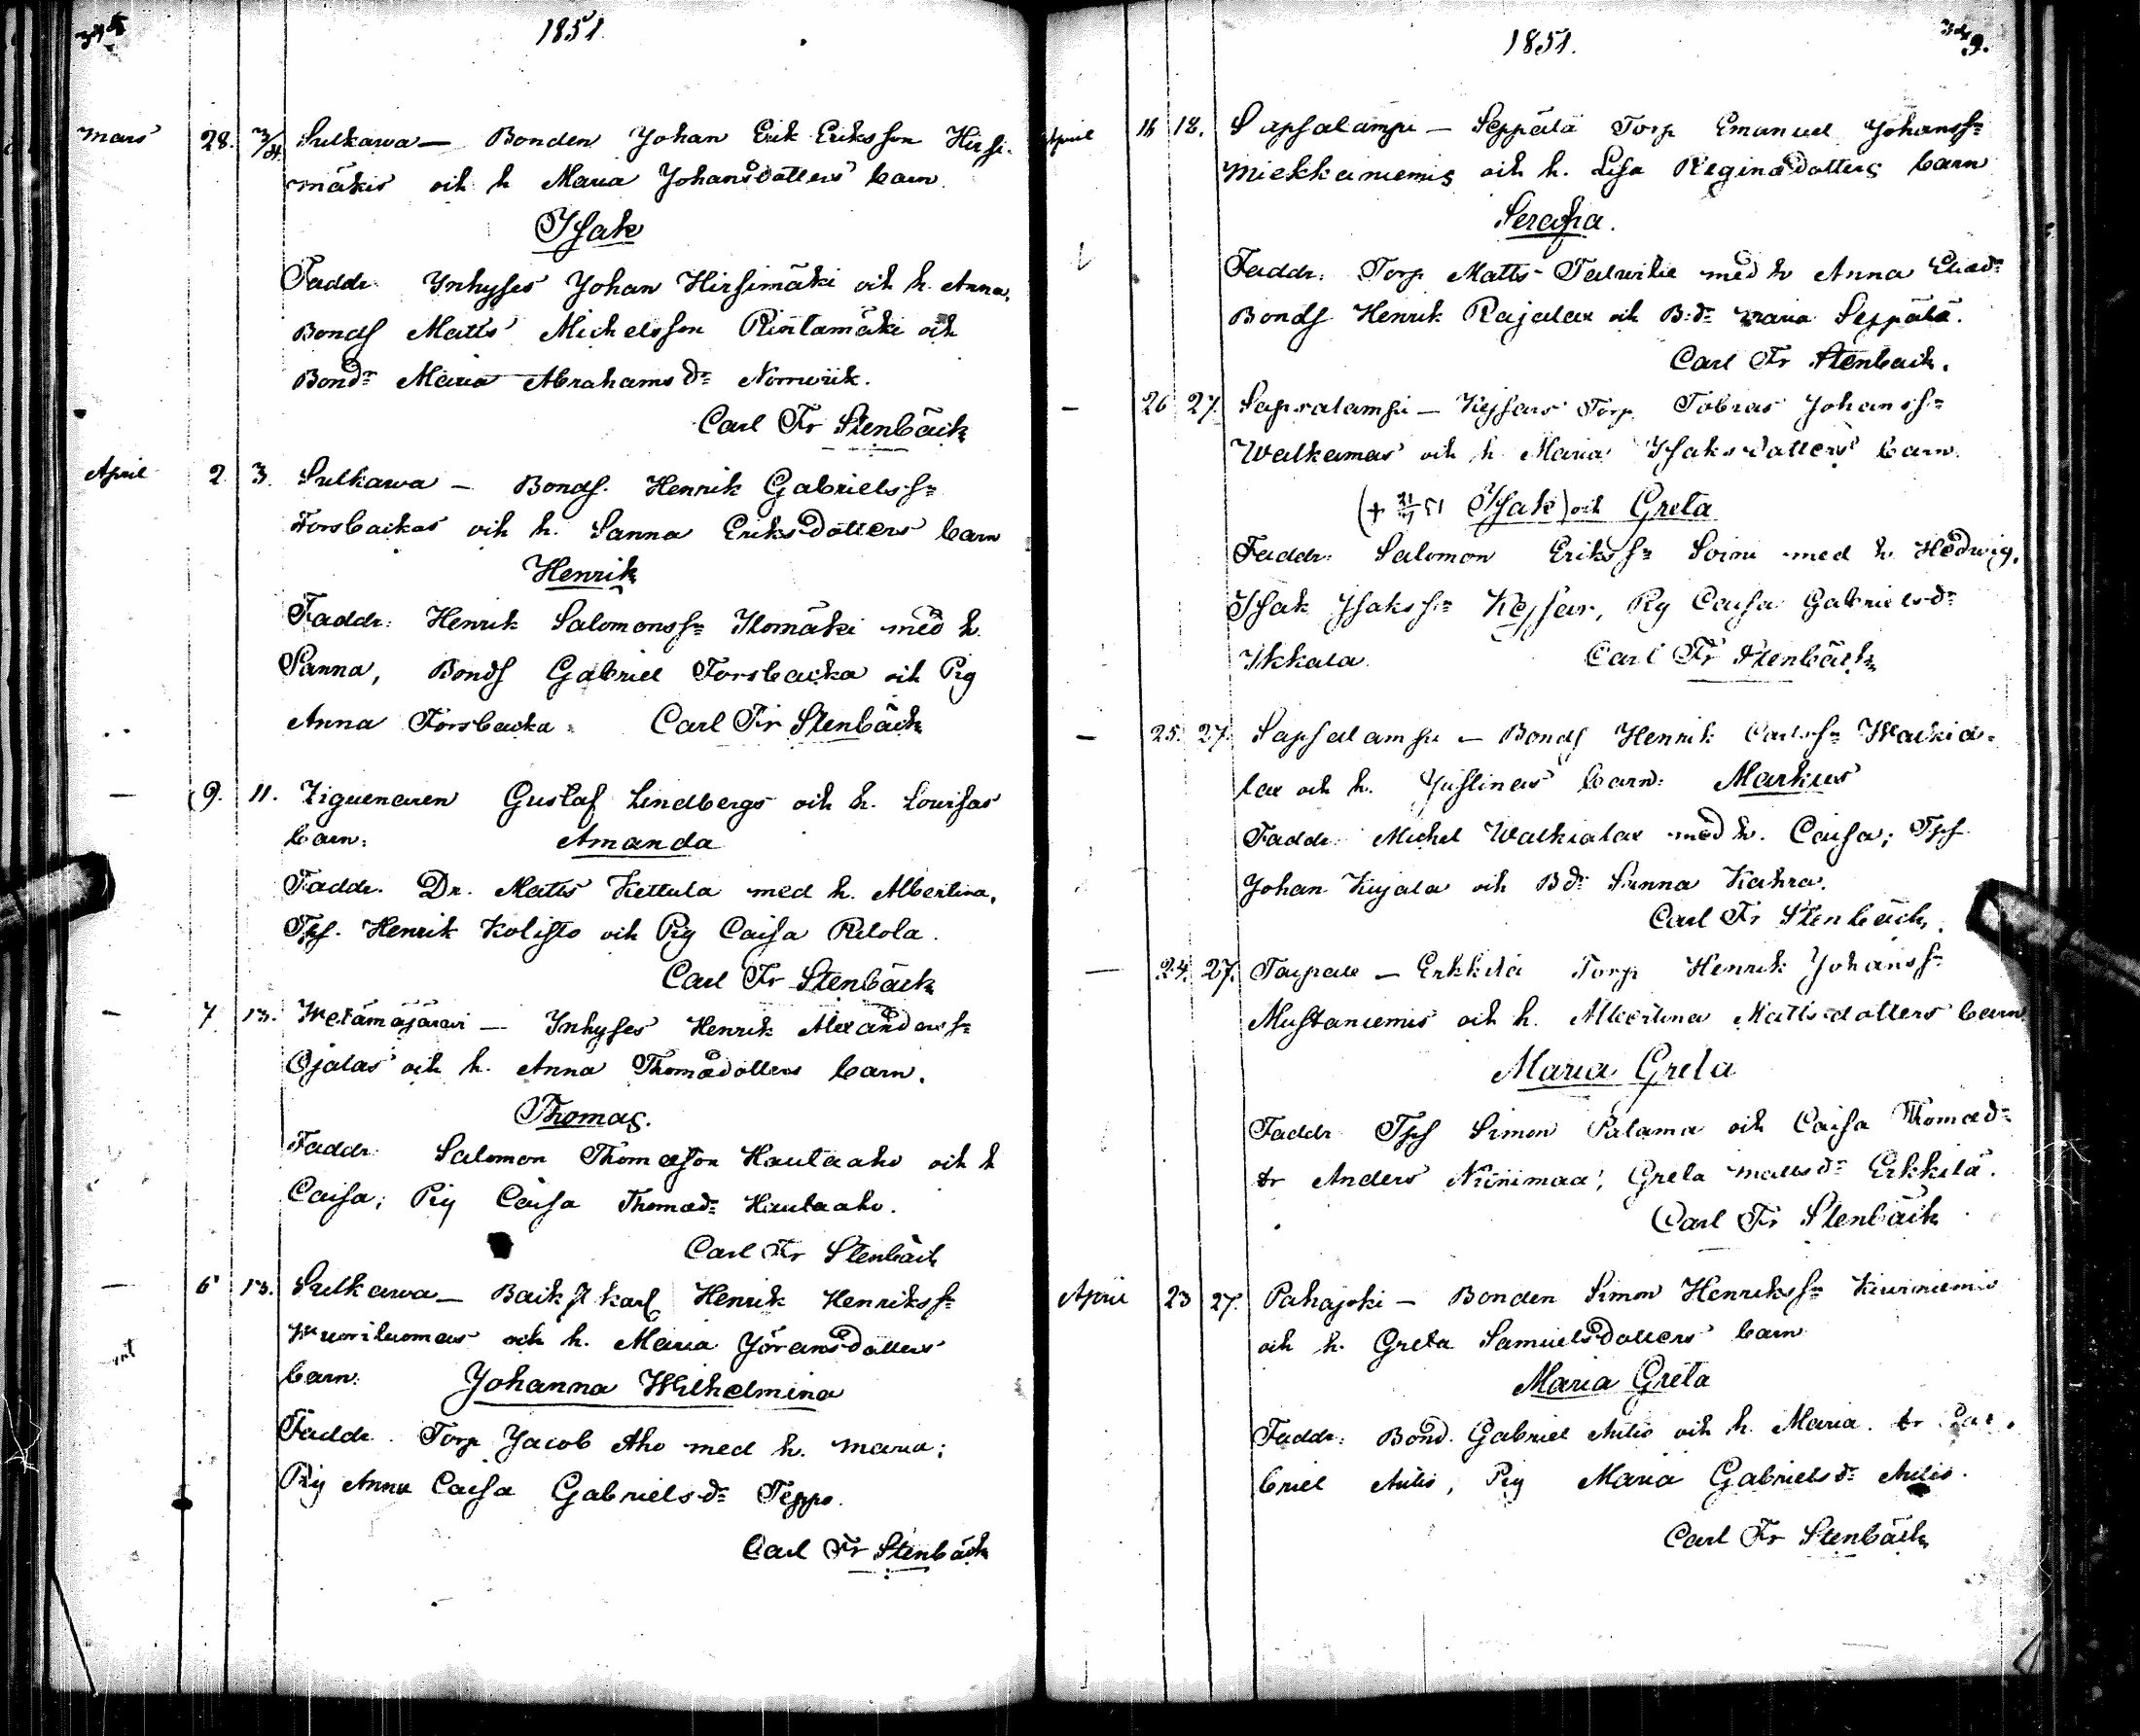 1851.
Mars 28. 3/4. Sulkawa — Bonden Johan Erik Eriksson Hirsi-
mäkis och h Maria Johansdotters barn.
Isak
Faddr. Inhyses Johan Hirsimäki och h. Anna,
Bonds Matts Michelsson Rintamäki och
Bondr Maria Abrahams dr
Carl Fr Stenbäck
April 2. 3. Sulkawa — Bonds. Henrik Gabrielssn
Forsbackas och h. Sanna Eriksdotters barn
Henrik
Faddr: Henrik Salomonssn Ilomäki med h.
Sanna, Bonds Gabriel Forsbacka och Pig
Anna Forsbacka. Carl Fr Stenbäck
— 9. 11. Ziguenaren Gustaf Lindbergs och h. Lovisas
barn: Amanda
Faddr. Dr. Matts Kettula med h. Albertina,
Tps. Henrik Kolisto och Pig Caisa Ritola.
Carl Fr Stenbäck
— 7 13. Wetämäjärwi — Inhyses Henrik Alexanderssn
Ojalas och h. Anna Thomædotters barn.
Thomas.
Faddr. Salomon Thomæson Hautaaho och h
Caisa; Pig Caisa Thomædr Hautaaho.
Carl Fr Stenbäck
— 6 13. Sulkawa — Henrik Henrikssn
Wuoriluomas och h. Maria Jöransdotters
barn. Johanna Wilhelmina
Faddr. Torp Jacob Aho med h. Maria;
Pig Anna Caisa Gabrielsdr Teppo.
Carl Fr Stenbäck
1851.
April 16 18. Sapsalampi — Seppälä Torp Emanuel Johanssn
Miekkaniemis och h. Lisa Reginadotters barn
Serafia.
Faddr. Torp Matts Talwitie med h Anna
Bonds Henrik Rajalax och B:dr Maria Seppälä.
Carl Fr Stenbäck.
— 26 27. Sapsalampi — Keisars Torp. Tobias Johanssn
Walkamas och h. Maria Isaksdotters barn.
(+ Isak) och Greta
Faddr: Salomon Erikssn Soini med h. Hedwig,
Isak Isakssn Keisar, Pig Caisa Gabrielsdr
Ikkala. Carl Fr Stenbäck
— 25. 27. Sapsalampi — Bonds Henrik Carlssn Walkia-
lax och h. Justinas barn: Markus
Faddr. Michel Walkialax med h. Caisa; Tps
Johan Kujala och Bdr Sanna Kahra.
Carl Fr Stenbäck.
— 24. 27. Taipale — Erkkilä Torp Henrik Johanssn
Mustaniemis och h. Albertina Mattsdotters barn
Maria Greta
Faddr Tps Simon Palama och Caisa Thomædr
dr Anders Niinimaa, Greta Mattsdr Erkkilä.
Carl Fr Stenbäck
April 23 27. Pahajoki — Bonden Simon Henrikssn Kiviniemis
och h. Greta Samuelsdotters barn
Maria Greta
Faddr: Bond. Gabriel Autio och h. Maria. dr Ga-
briel Autio, Pig Maria Gabrielsdr Autio.
Carl Fr Stenbäck